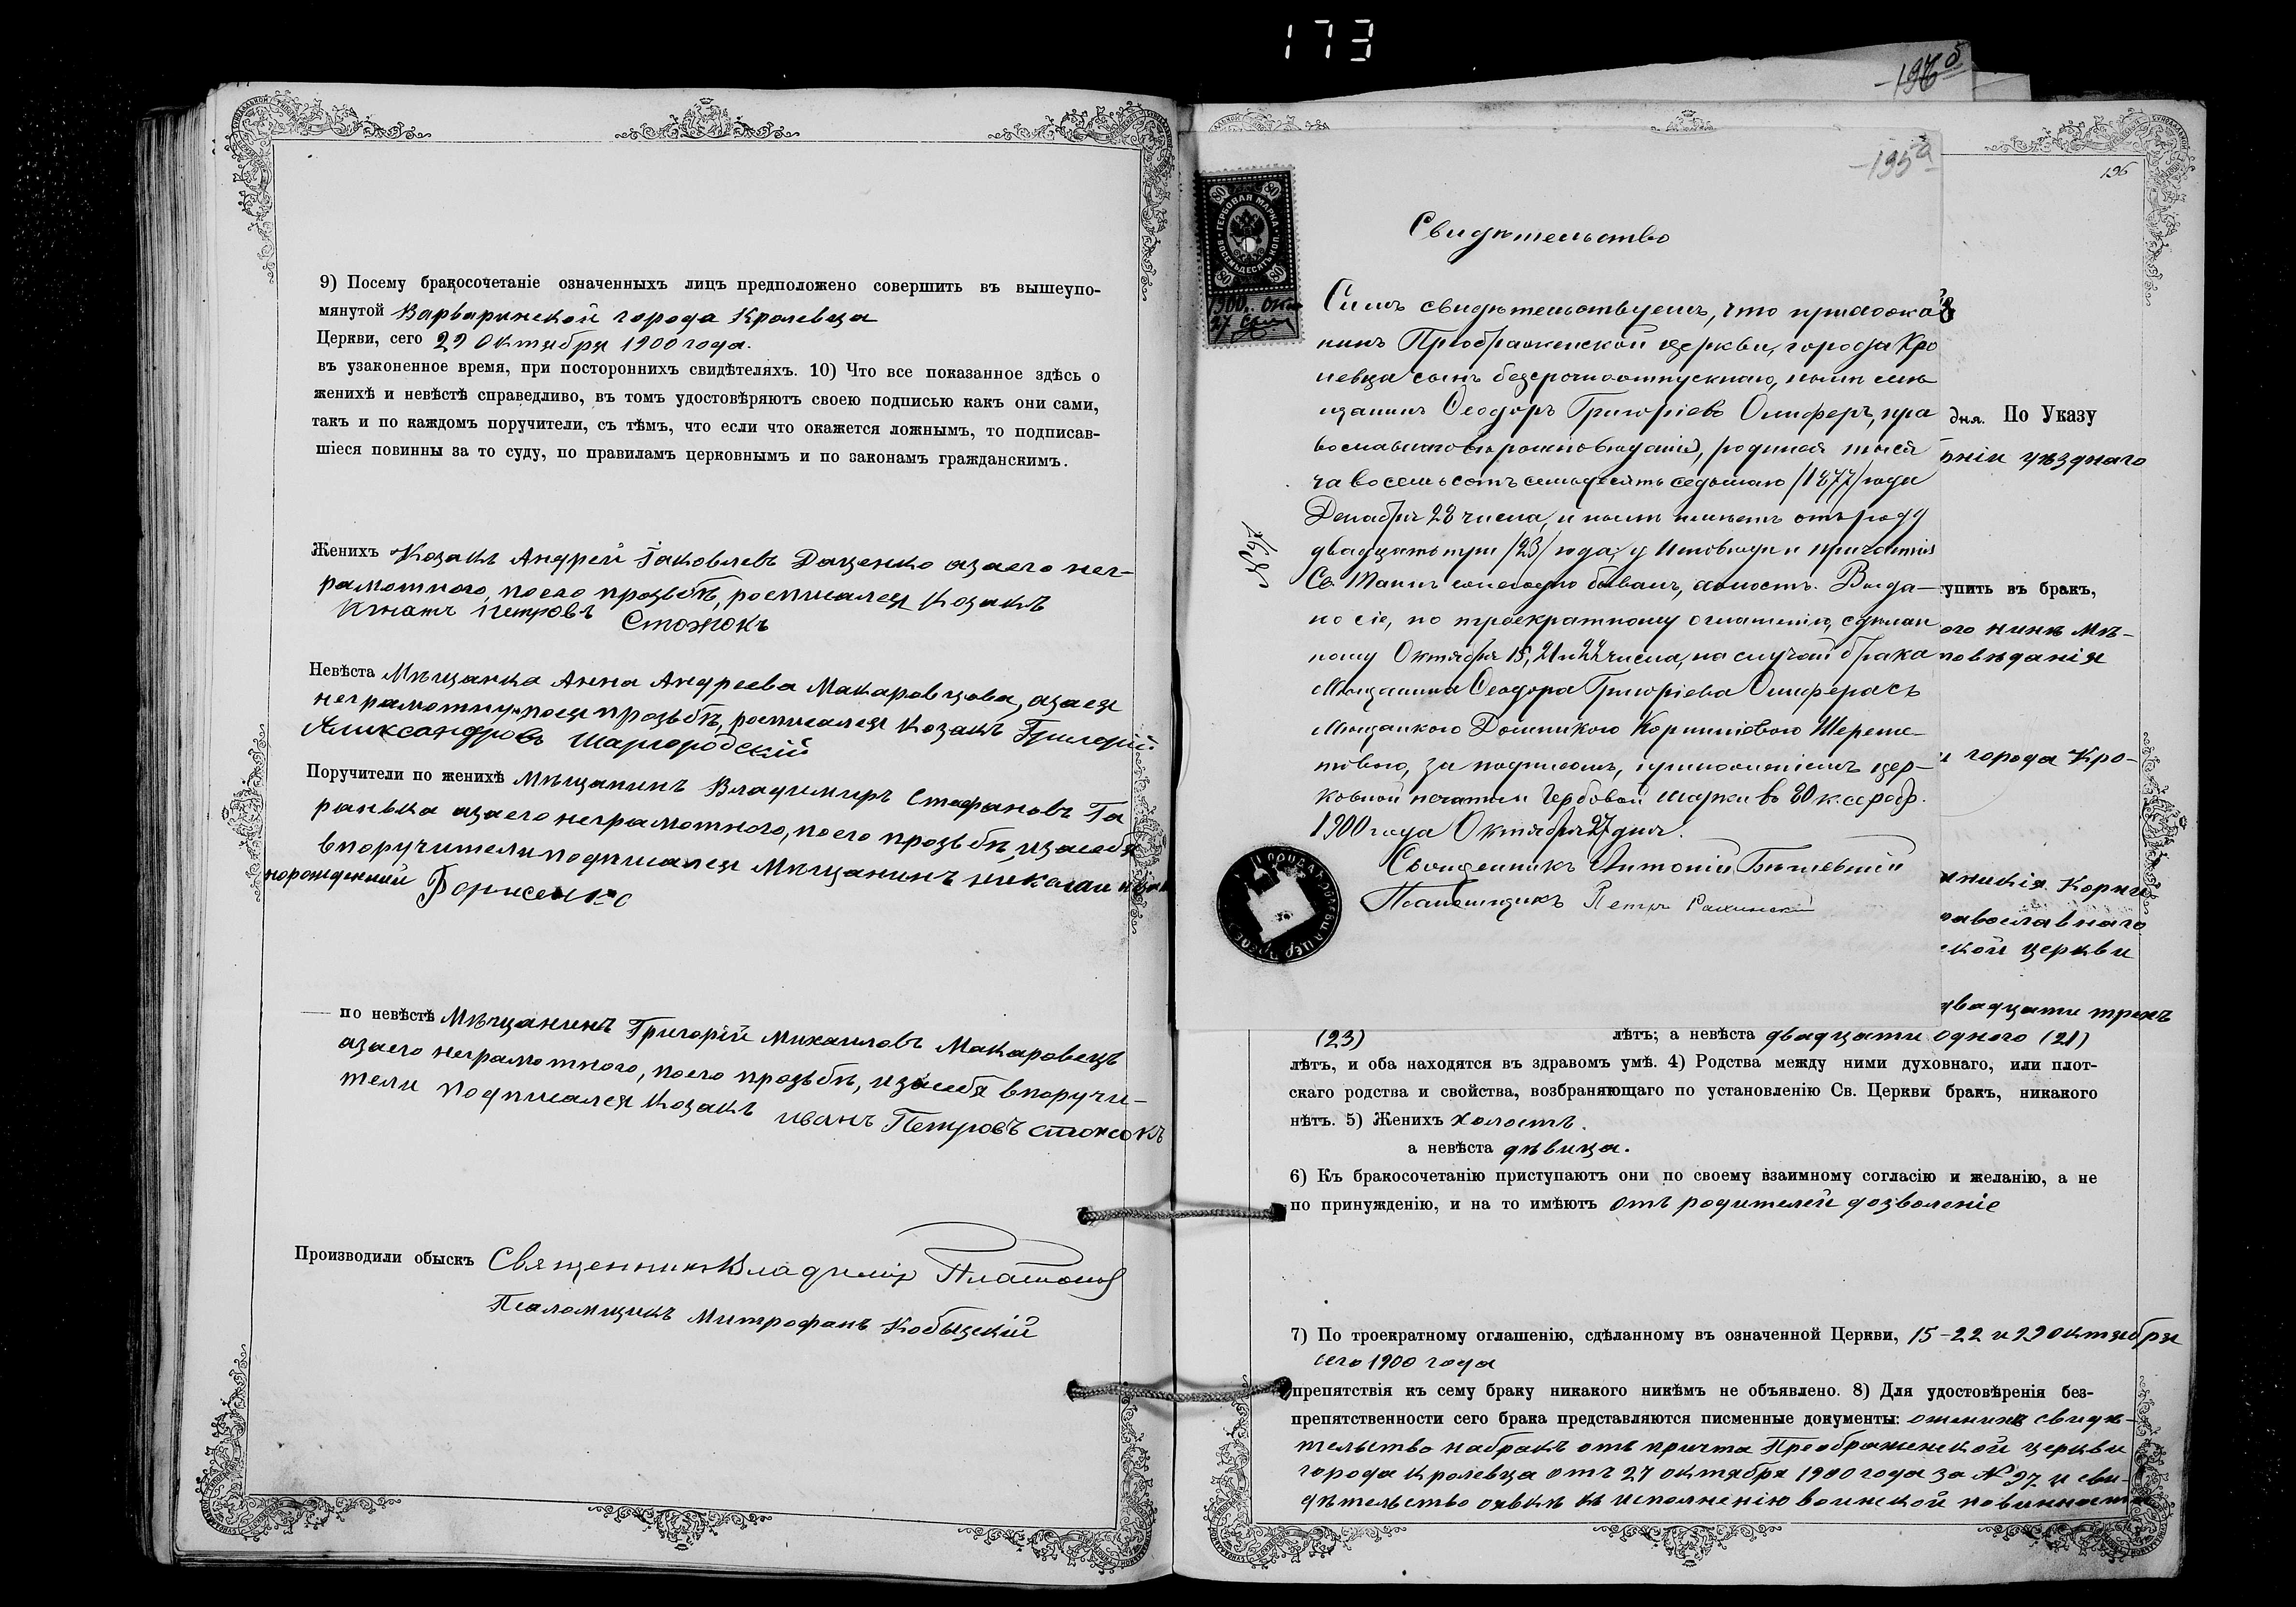 173
-196 б
9) Посему бракосочетаніе означенныхъ лицъ предположено совершить въ вышеупо-
мянутой Варваринской города Кролевца
Церкви, сего 29 Октября 1900 года.
въ узаконенное время, при постороннихъ свидѣтеляхъ. 10) Что все показанное здѣсь о
женихѣ и невѣстѣ справедливо, въ томъ удостовѣряютъ своею подписью какъ они сами,
такъ и по каждомъ поручители, съ тѣмъ, что если что окажется ложнымъ, то подписав-
шіеся повинны за то суду, по правиламъ церковнымъ и по законамъ гражданскимъ.
Женихъ Козакъ Андрей Іаковлевъ Даценко азаего нег-
рамотного, поего прозьбѣ, росписался Козакъ
Игнатъ Петровъ Стожокъ
Невѣста Мѣщанка Анна Андреева Макаровцова, азаея
неграмотну, поея прозьбѣ, росписался Козакъ Григорій
Александровъ Шаргородскій
Поручители по женихѣ Мѣщанинъ Владимиръ Стефановъ Га
ранька азаего неграмотного, поего прозьбѣ, изасебя
впоручители подписался Мѣщанинъ Николай
Борисенко
по невѣстѣ Мѣщанинъ Григорій Михаиловъ Макаровецъ
азаего неграмотного, поего прозьбѣ, изасебя впоручи-
тели подписался Козакъ Иванъ Петровъ Стожокъ
Производили обыскъ Священникъ Владиміръ Платоновъ
Псаломщикъ Митрофанъ Кобыцскій
-195 а
196
ГЕРБОВАЯ МАРКА
ВОСЕМЬДЕСЯТЪ КОП.
80 80
80 80
1900. Окт
27
Свидѣтельство
Симъ свидѣтельствуемъ, что прихожа
нинъ Преображенской церкви, города Кро
левца сынъ безсрочноотпускнаго, нынѣ мѣ
щанинъ Ѳеодоръ Григоріевъ Олиферъ, пра
вославнаго вѣроисповѣданія, родился тыся
ча восемьсотъ семьдесятъ седьмаго /1877/ года
Декабря 28 числа, и нынѣ имѣетъ отъ роду
двадцать три /23/ года, у Исповѣди и причастія
Св. Таинъ ежегодно бывалъ, холостъ. Выда-
но сіе, по троекратному оглашенію, сдѣлан
ному Октября 15, 21 и 22 числа, на случай брака
Мѣщанина Ѳеодора Григоріева Олифера съ
Мѣщанкою Домникою Корниліевою Шереме-
товою, за подписомъ, приложеніемъ цер-
ковной печати и Гербовой марки въ 80 к. серебр.
1900 года Октября 27 дня.
Священникъ Антоній
Псаломщикъ Петръ
№ 97
дня. По Указу
рніи уѣзднаго
тупить въ бракъ,
ого нинѣ Мѣ-
повѣданія
и города Кро-
мникія Корни
равославнаго
ской церкви
двадцати трехъ
(23) лѣтъ; а невѣста двадцати одного (21)
лѣтъ, и оба находятся въ здравомъ умѣ. 4) Родства между ними духовнаго, или плот-
скаго родства и свойства, возбраняющаго по установленію Св. Церкви бракъ, никакого
нѣтъ. 5) Женихъ холостъ.
а невѣста дѣвица.
6) Къ бракосочетанію приступаютъ они по своему взаимному согласію и желанію, а не
по принужденію, и на то имѣютъ отъ родителей дозволеніе
7) По троекратному оглашенію, сдѣланному въ означенной Церкви, 15-22 и 29 октября
сего 1900 года
препятствія къ сему браку никакого никѣмъ не объявлено. 8) Для удостовѣренія без-
препятственности сего брака представляются писменные документы: отъ нихъ свидѣ-
тельство набракъ отъ причта Преображенской церкви
города Кролевца отъ 27 октября 1900 года за № 97 и сви-
дѣтельство оявкѣ къ исполненію воинской повинности